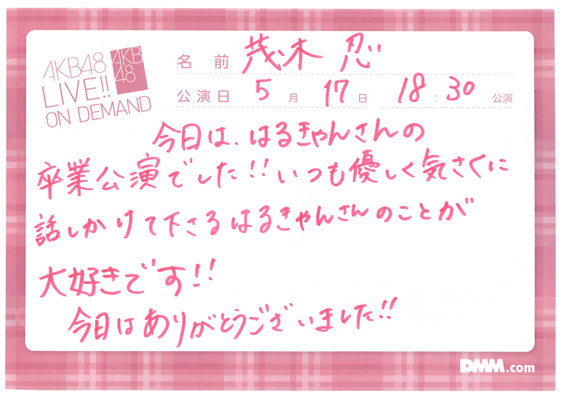 AKB48
LIVE!!
ON DEMAND
AKB
48
名前 茂木 忍
公演日 5月 17日 18:30 公演
今日は、はるきゃんさんの
卒業公演でした!!いつも優しく気さくに
話しかけて下さるはるきゃんさんのことが
大好きです!!
今日はありがとうございました!!
DMM.com